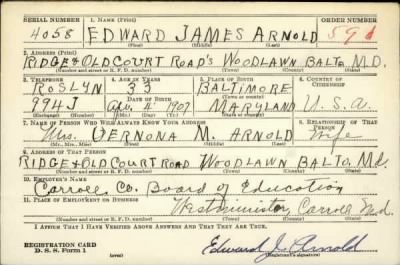 SERIAL NUMBER 1. NAME (Print) ORDER NUMBER
4058 EDWARD JAMES ARNOLD 591
(First) (Middle) (Last)
2. ADDRESS (Print)
RIDGE & OLD COURT ROAD'S WOODLAWN BALTO. M.D.
(Number and street or R. F. D. number) (Town) (County) (State)
3. TELEPHONE 4. AGE IN YEARS 5. PLACE OF BIRTH 6. COUNTRY OF CITIZENSHIP
ROSLYN 33 BALTIMORE
DATE OF BIRTH (Town or county)
994J Apr. 4 1907 MARYLAND U.S.A.
(Exchange) (Number) (Mo.) (Day) (Yr.) (State or country)
7. NAME OF PERSON WHO WILL ALWAYS KNOW YOUR ADDRESS 8. RELATIONSHIP OF THAT PERSON
Mrs. VERNONA M. ARNOLD Wife
(Mr., Mrs., Miss) (First) (Middle) (Last)
9. ADDRESS OF THAT PERSON
RIDGE & OLD COURT ROAD WOODLAWN BALTO. Md.
(Number and street or R. F. D. number) (Town) (County) (State)
10. EMPLOYER'S NAME
Carroll Co. Board of Education
11. PLACE OF EMPLOYMENT OR BUSINESS
Westminister, Carroll Md.
(Number and street or R. F. D. number) (Town) (County) (State)
I AFFIRM THAT I HAVE VERIFIED ABOVE ANSWERS AND THAT THEY ARE TRUE.
REGISTRATION CARD
D. S. S. Form 1 (over) Edward J. Arnold
(Registrant's signature)